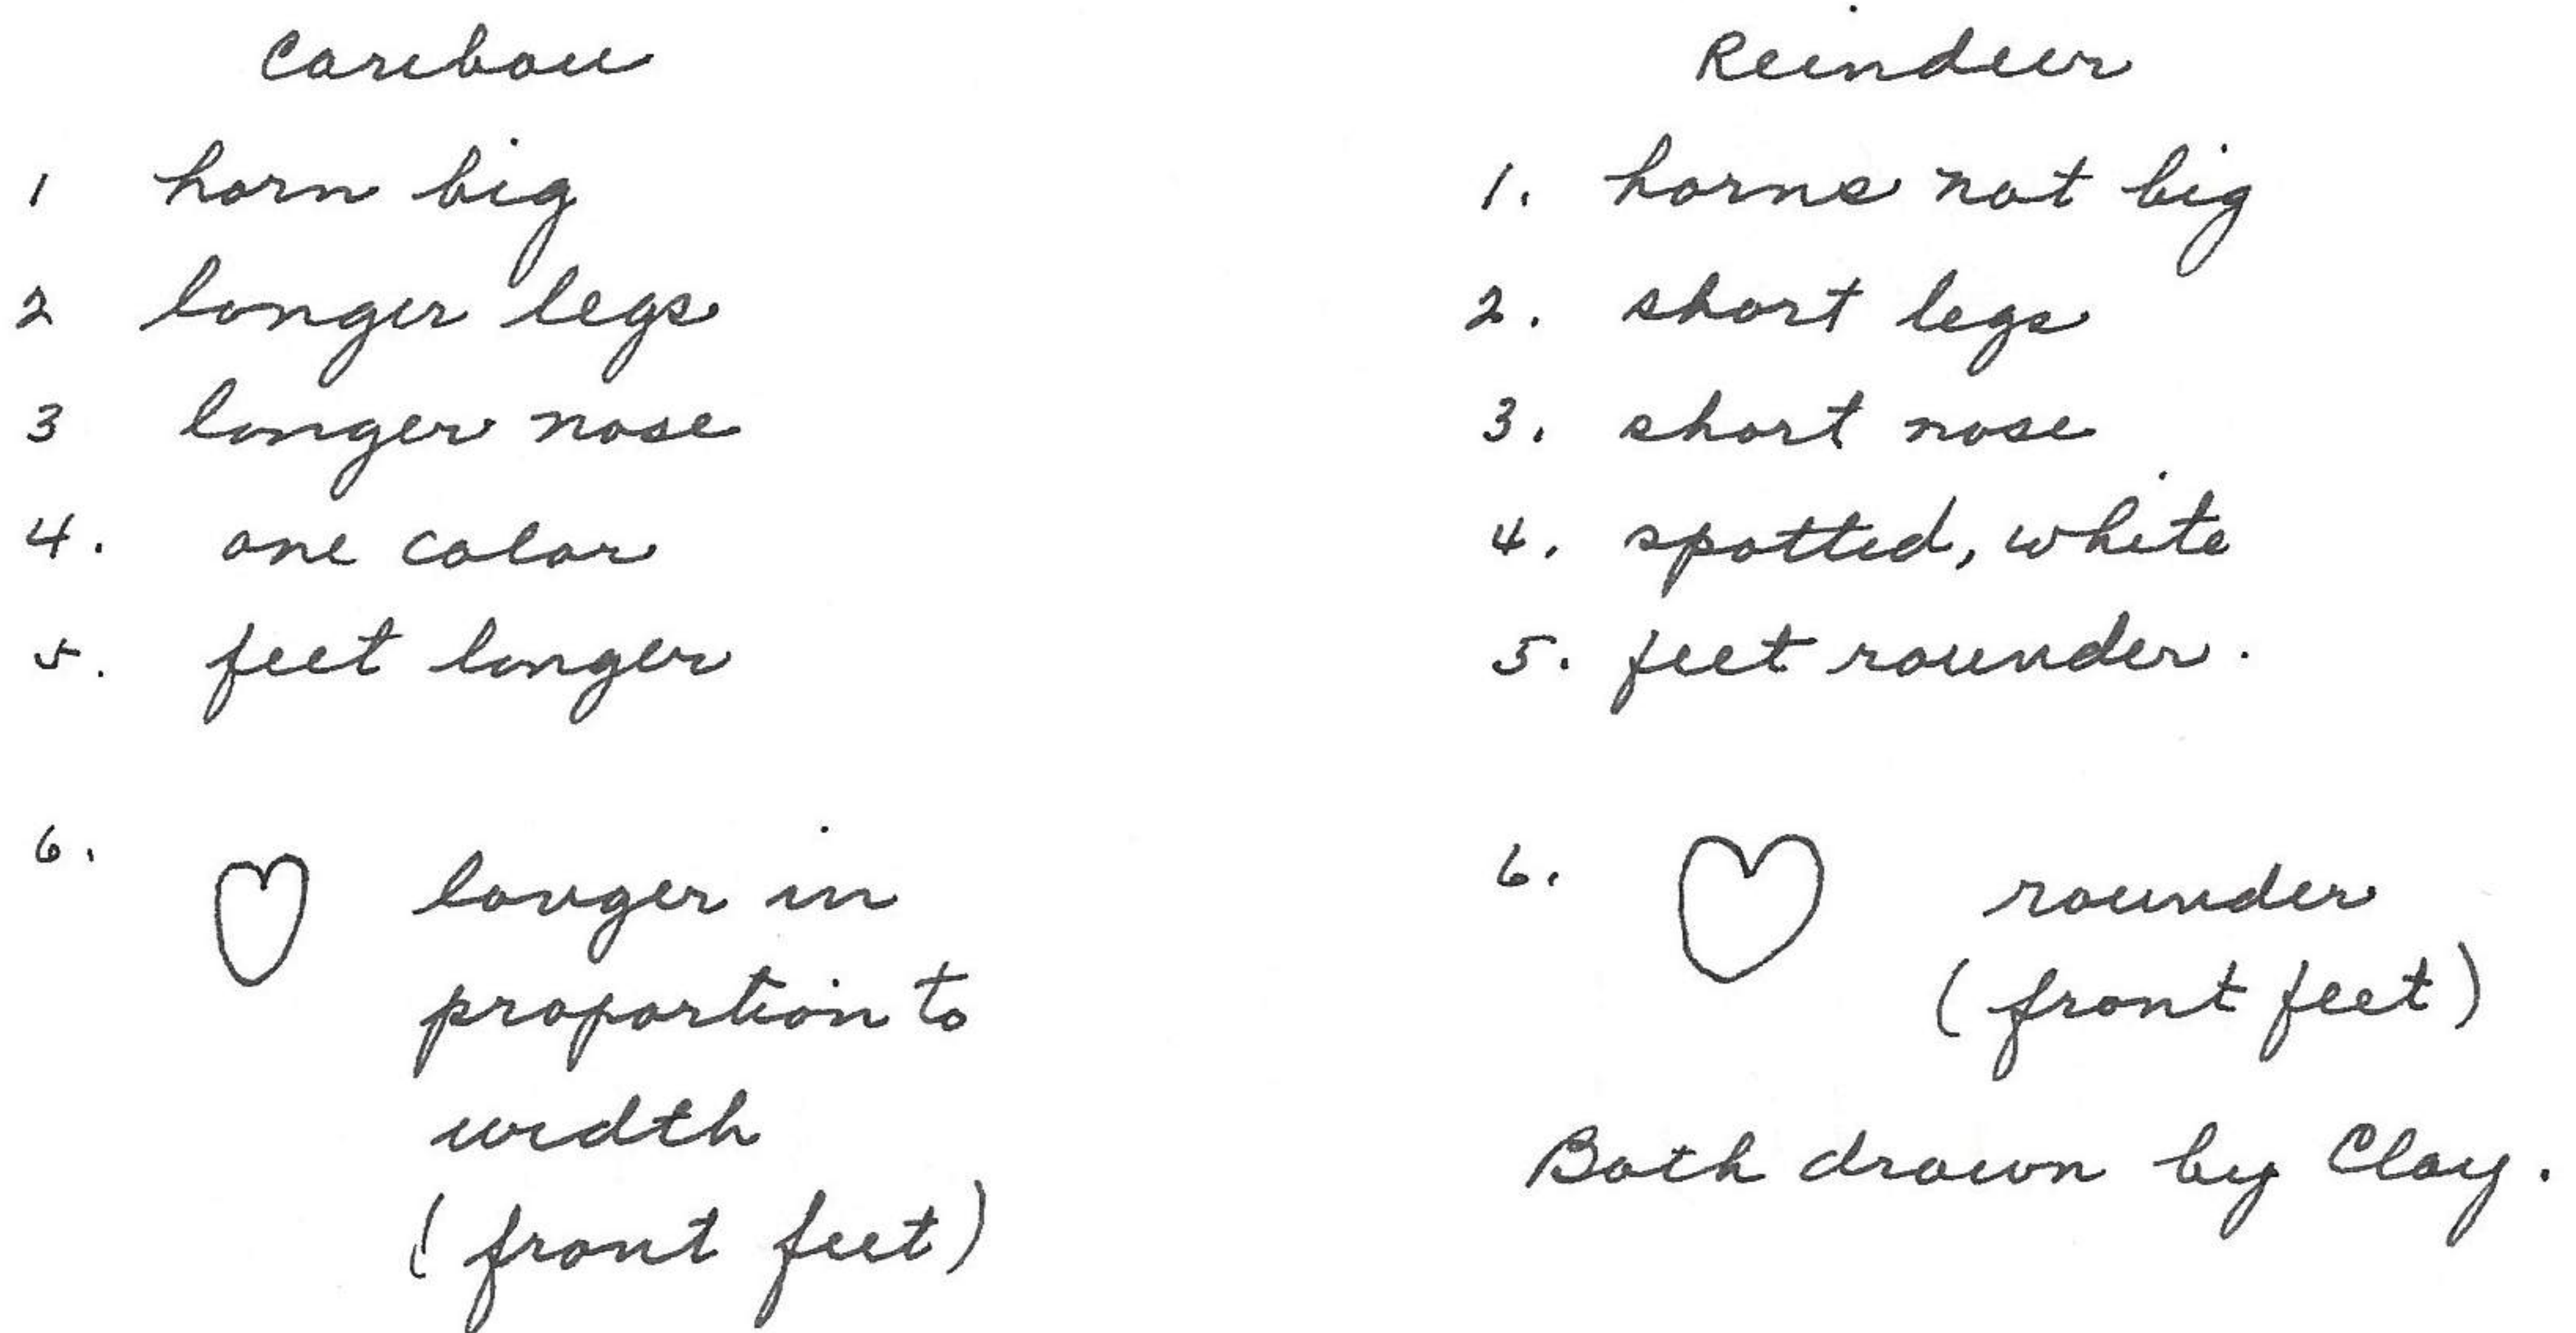 Caribou
1 horn big
2 longer legs
3 longer nose
4. one color
5. feet longer
6. longer in
proportion to
width
(front feet)
Reindeer
1. horns not big
2. short legs
3. short nose
4. spotted, white
5. feet rounder.
6. rounder
(front feet)
Both drawn by Clay.